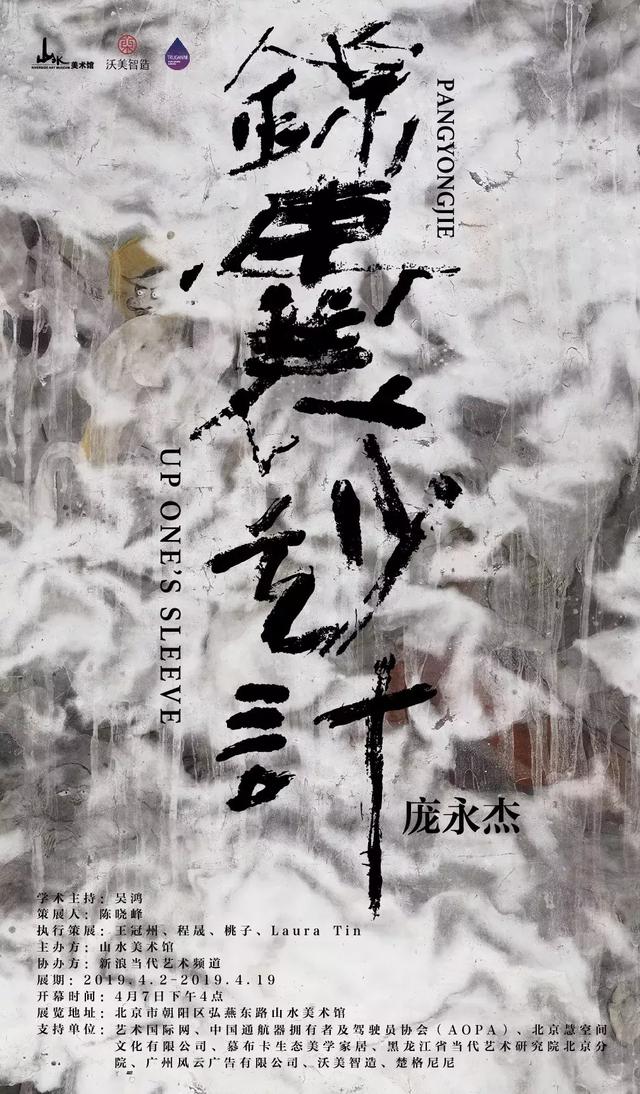 美术馆
RIVERSIDE ART MUSEUM
沃美智造
PANGYONGJIE
錦囊玅計
UP ONE'S SLEEVE
庞永杰
学术主持：吴鸿
策展人：陈晓峰
执行策展：王冠州、程晟、桃子、Laura Tin
主办方：山水美术馆
协办方：新浪当代艺术频道
展期：2019.4.2-2019.4.19
开幕时间：4月7日下午4点
展览地址：北京市朝阳区弘燕东路山水美术馆
支持单位：艺术国际网、中国通航器拥有者及驾驶员协会（AOPA）、北京慧空间
文化有限公司、慕布卡生态美学家居、黑龙江省当代艺术研究院北京分
院、广州风云广告有限公司、沃美智造、楚格尼尼